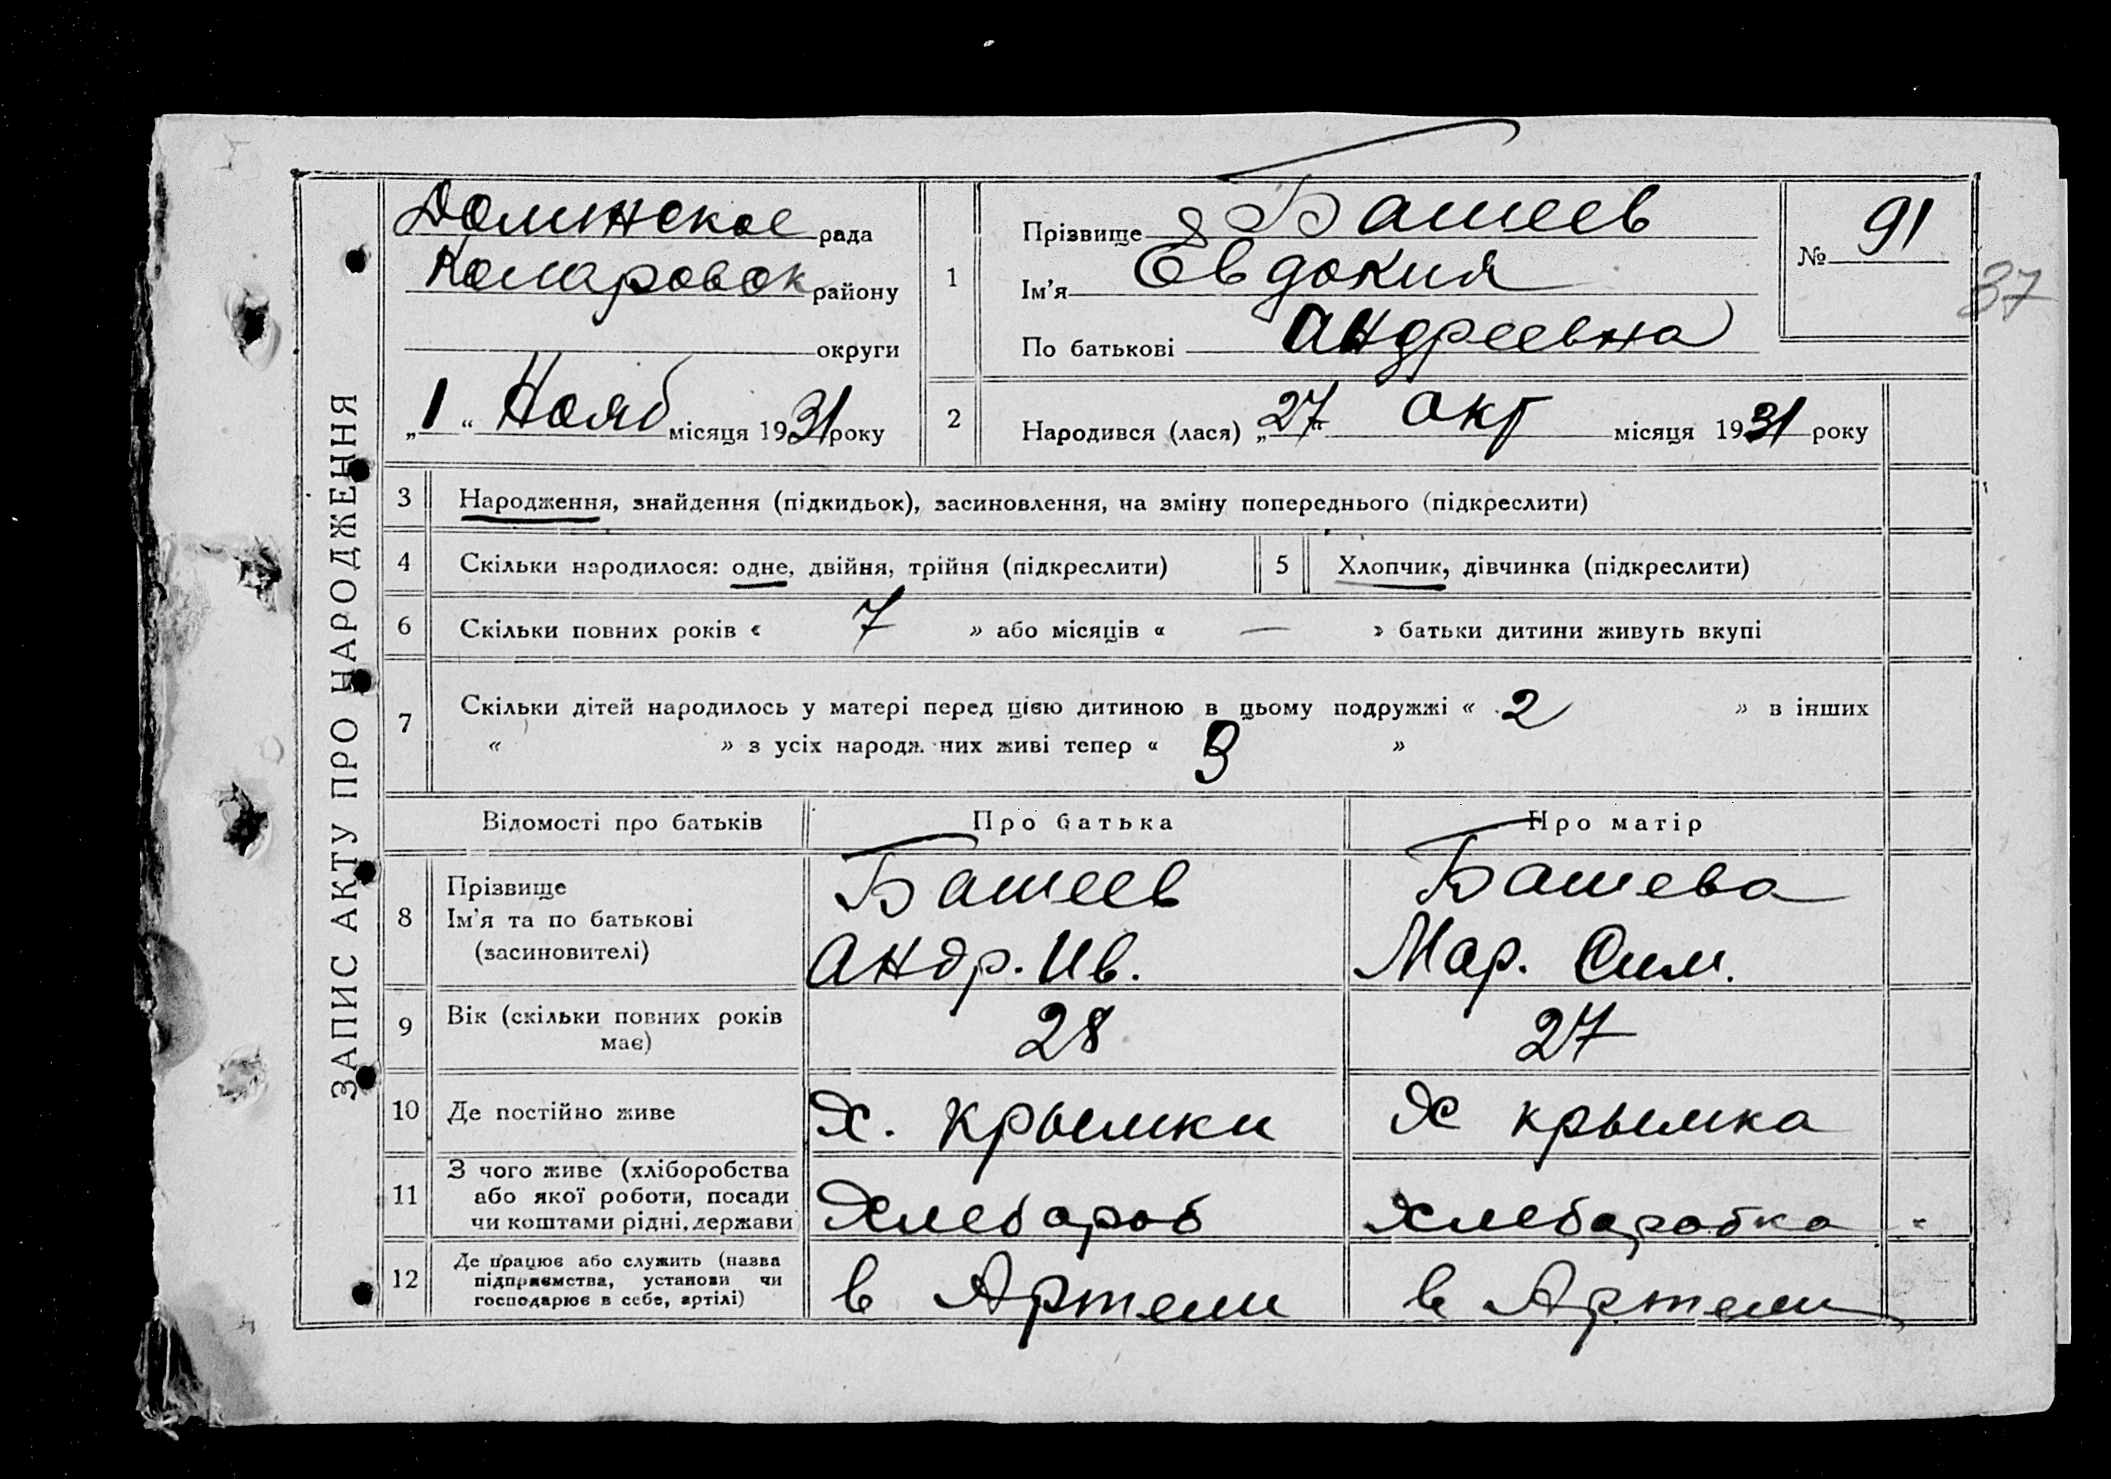 ЗАПИС АКТУ ПРО НАРОДЖЕННЯ
Долинское рада
Комаровск району
округи
„1“ Нояб місяця 1931 року
1
Прізвище Башеев
Ім'я Евдокия
По батькові Андреевна
№ 91
37
2
Народився (лася) „27“ окт місяця 1931 року
3 Народження, знайдення (підкидьок), засиновлення, на зміну попереднього (підкреслити)
4 Скільки народилося: одне, двійня, трійня (підкреслити)
5 Хлопчик, дівчинка (підкреслити)
6 Скільки повних років « 7 » або місяців « — » батьки дитини живуть вкупі
7 Скільки дітей народилось у матері перед цією дитиною в цьому подружжі « 2 » в інших
« » з усіх народж них живі тепер « 3 »
Відомості про батьків Про батька Про матір
8 Прізвище
Ім'я та по батькові
(засиновителі)
Башеев
Андр. Ив.
Башева
Мар. Сим.
9 Вік (скільки повних років
має)
28 27
10 Де постійно живе Х. Крымки Х крымка
11 З чого живе (хліборобства
або якої роботи, посади
чи коштами рідні, держави
Хлебароб Хлебаробка
12 Де працює або служить (назва
підприємства, установи чи
господарює в себе, артілі)
в Артели в Артели